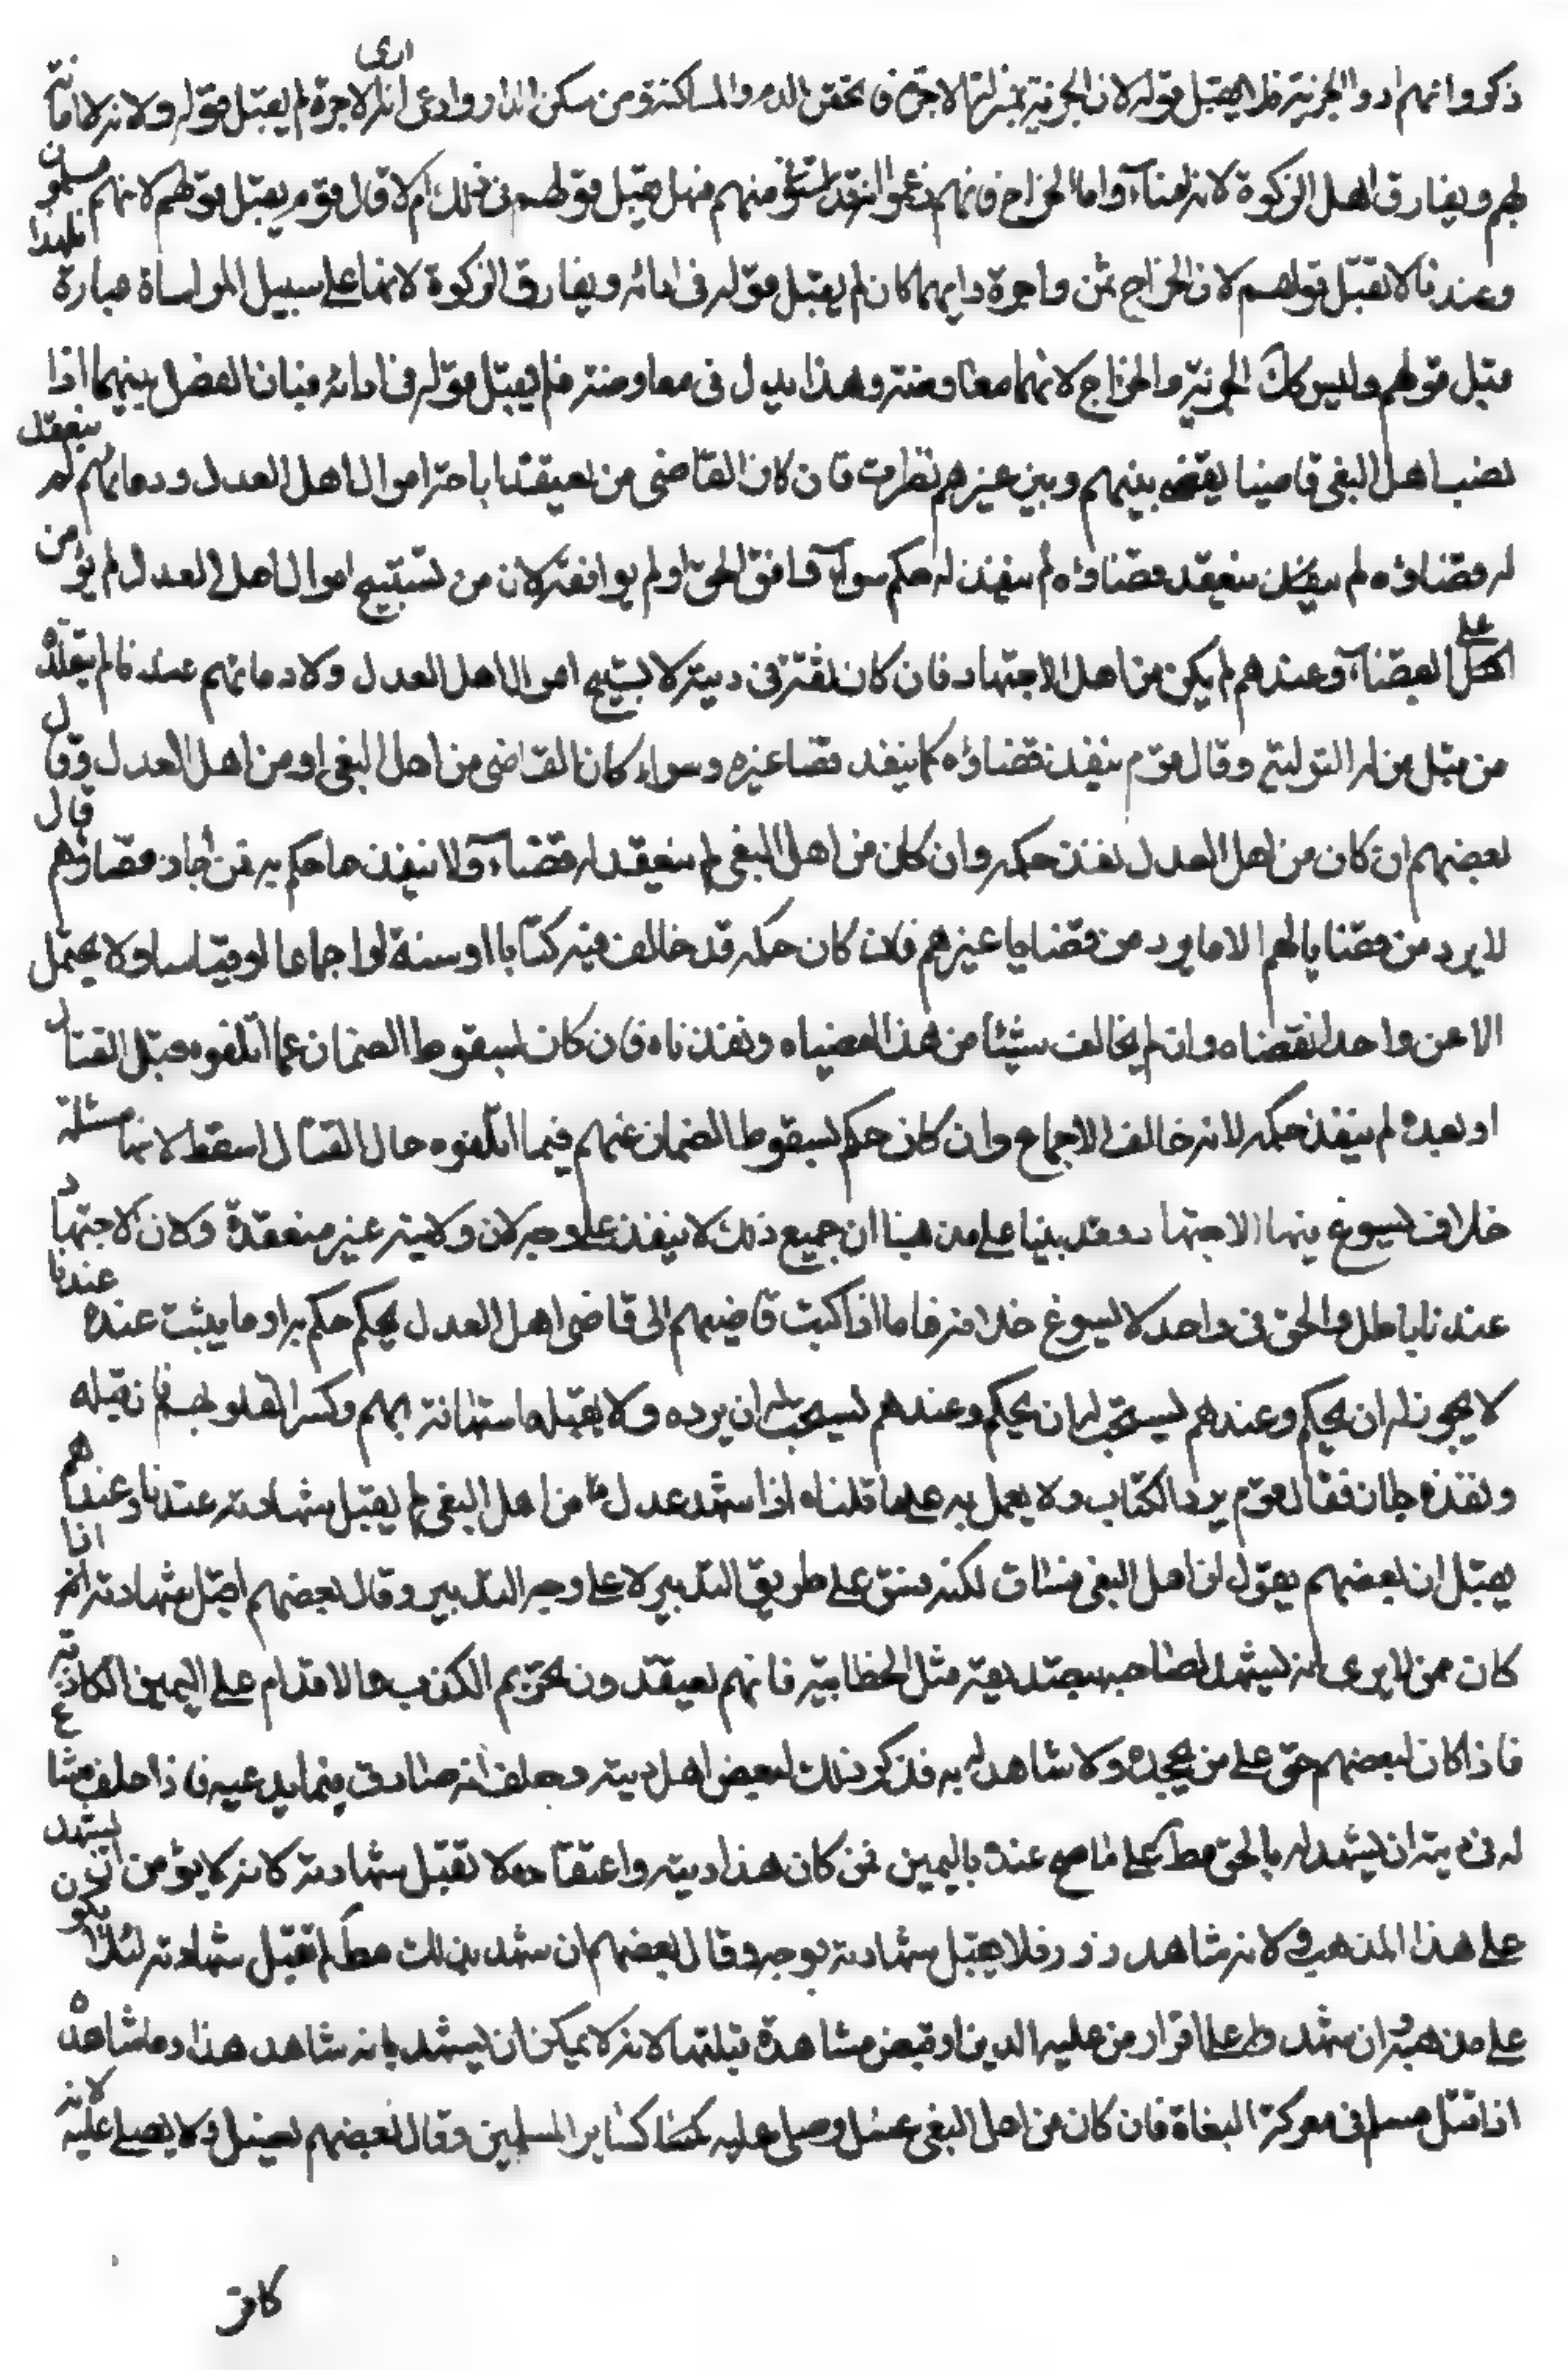 ذكروا انهم ادوا الجزية فلا يقبل قوله لان الجزية بمنزلة الاجرة فى تحقن الدم والمساكنة ومن سكن الدار وادعى انه ادى الاجرة لم يقبل قوله ولانه لا امانة
لهم ويفارق اهل الزكوة لانه امناء واما الخراج فانهم ادعوا انه قد استوفى منهم فهل يقبل قولهم فى ذلك ام لا قال قوم يقبل قولهم لانهم مسلمون
وعندنا لا يقبل قولهم لان الخراج ثمن واجرة وايهما كان لم يقبل قوله فى ادائه ويفارق الزكوة لانها على سبيل المواساة عبادة فلهذا
قبل قولهم وليس كك الجزية والخراج لانهما معاوضة وهذا بدل فى معاوضة فلم يقبل قوله فى ادائه فبان الفصل بينهما اذا
نصب اهل البغى قاضيا يقضى بينهم وبين غيرهم نظرت فان كان القاضى ممن يعتقد اباحة اموال اهل العدل ودمائهم لم ينعقد
له قضاؤه لم ينعقد قضاؤه لم ينفذ له حكم سواء وافق الحق او لم يوافقه لان من يستبيح اموال اهل العدل لم يؤمن
على القضاء وعندهم لم يكن من اهل الاجتهاد فان كان ثقة فى دينه لا يستبيح اموال اهل العدل ولا دمائهم عندنا لم يقلده
من قبل من له التولية وقال قوم ينفذ قضاؤه كما ينفذ قضا غيره وسواء كان القاضى من اهل البغى او من اهل العدل وقال
بعضهم ان كان من اهل العدل نفذ حكمه وان كان من اهل البغى لم ينعقد له قضاء ولا ينفذ ما حكم به فمن اجاز قضاؤهم قال
لا يرد من قضاياهم الا ما يرد من قضايا غيرهم فان كان حكمه قد خالف فيه كتابا او سنة او اجماعا او قياسا ولا يحتمل
الا من واحد انقضناه وان لم يخالف شيئا من هذا امضيناه ونفذناه فان كان بسقوط الضمان عما اتلفوه قبل القتال
او بعده لم ينفذ حكمه لانه خالف الاجماع وان كان حكم بسقوط الضمان عنهم فيما اتلفوه حال القتال اسقط لانها مسئلة
خلاف يسوغ فيها الاجتهاد وقد بينا على مذهبنا ان جميع ذلك لا ينفذ على وجه لان ولايته غير منعقدة ولان الاجتهاد
عندنا باطل والحق فى واحد لا يسوغ خلافه فاما اذا كتب قاضيهم الى قاضى اهل العدل بحكم حكم به او ما يثبت عنده عندنا
لا يجوز له ان يحكم وعندهم يستحب له ان يحكم وعندهم يستحب له ان يرده ولا يقبله استهانة بهم وكسرا لقلوبهم فان قبله
ونفذه جاز فقال قوم يرد الكتاب ولا يعمل به على ما قلناه اذا شهد عدل من اهل البغى لم يقبل شهادته عندنا وعندهم
يقبل ان بعضهم يقول ان اهل البغى فساق لكنه فسق على طريق التدين لا على وجه التدبير وقال بعضهم اقبل شهادته اذا
كان ممن لا يرى انه يشهد لصاحبه بتصديقه مثل الخطابية فانهم يعتقدون تحريم الكذب والاقدام على اليمين الكاذبة
فاذا كان لبعضهم حق على من يجحده ولا شاهد له به فذكر ذلك لبعض اهل دينه وحلف انه صادق فيما يدعيه فاذا حلف ساغ
له فى دينه ان يشهد له بالحق مط على ما صح عنده باليمين فمن كان هذا دينه واعتقاده لا تقبل شهادته لانه لا يؤمن ان يشهد
على هذا المذهب ولانه شاهد زور فلا يقبل شهادته بوجه وقال بعضهم ان شهد بذلك مط لم تقبل شهادته لئلا يكون
على مذهبه وان شهد على اقرار من عليه الدين او قبض مشاهدة قبلتها لانه لا يمكن ان يشهد بانه شاهد هذا وما شاهده
اذا قتل مسلم فى معركة البغاة فان كان من اهل البغى غسل وصلى عليه كساير المسلمين وقال بعضهم يغسل ولا يصلى عليه لانه
كافر